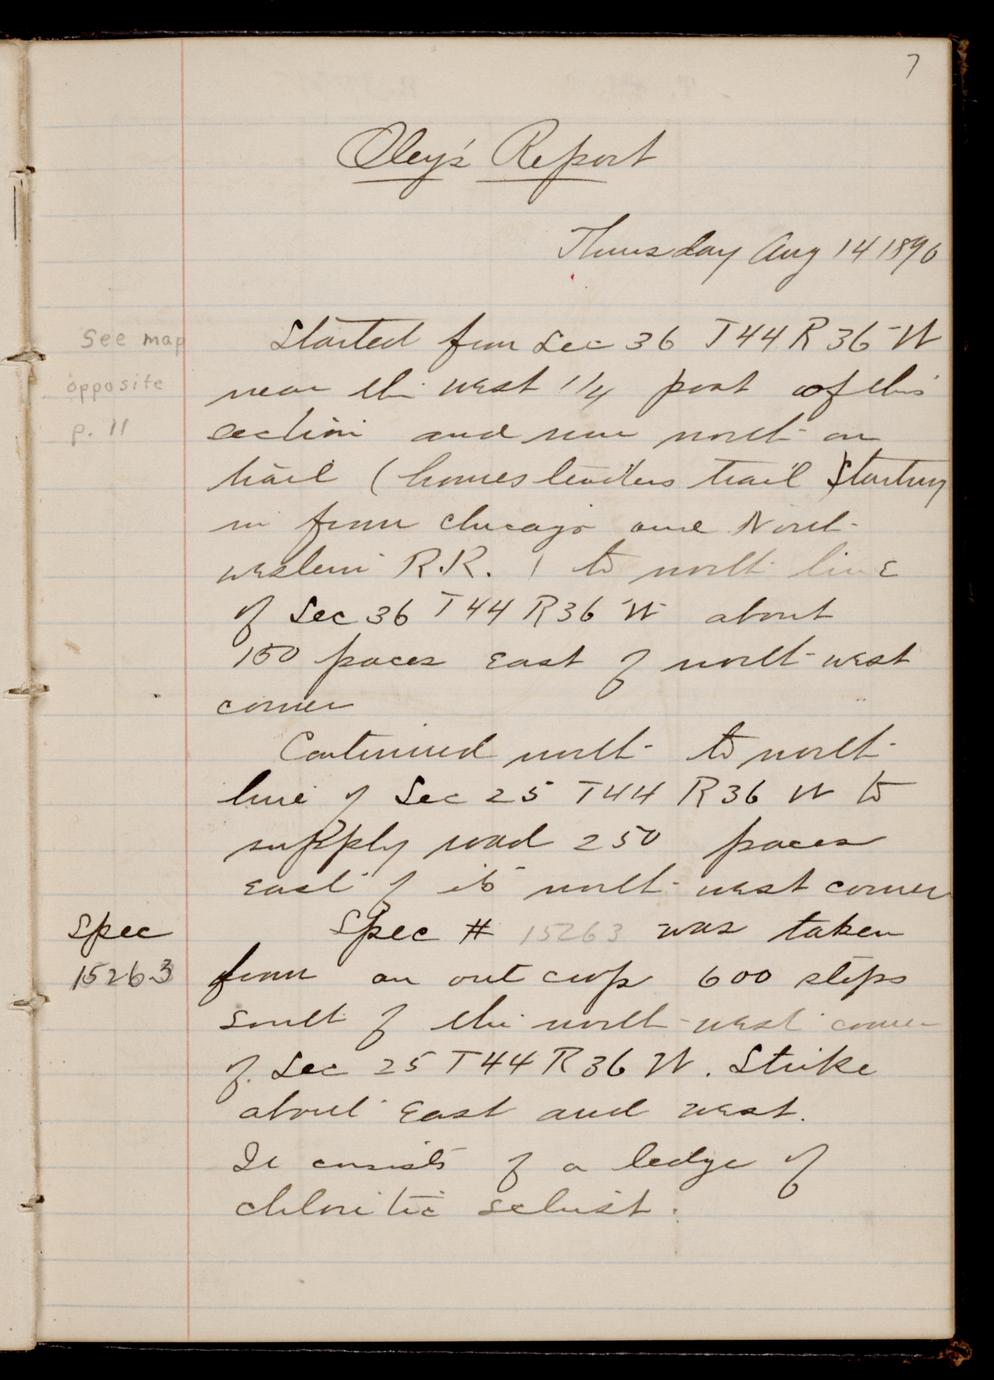 7
Oley's Report
Thursday Aug 14 1890
See map
opposite
p. 11
Started from Sec 36 T44 R36 W
near the west 1/4 post of this
section and run north on
trail (homesteaders trail starting
in from Chicago and North-
western R.R. ) to north line
of Sec 36 T44 R36 W about
150 paces east of north-west
corner
Continued north to north
line of Sec 25 T44 R36 W to
supply road 250 paces
east of its north-west corner
Spec
15263
Spec # 15263 was taken
from an out crop 600 steps
south of the north-west corner
of Sec 25 T44 R36 W. Strike
about East and west.
It consists of a ledge of
chloritic schist.